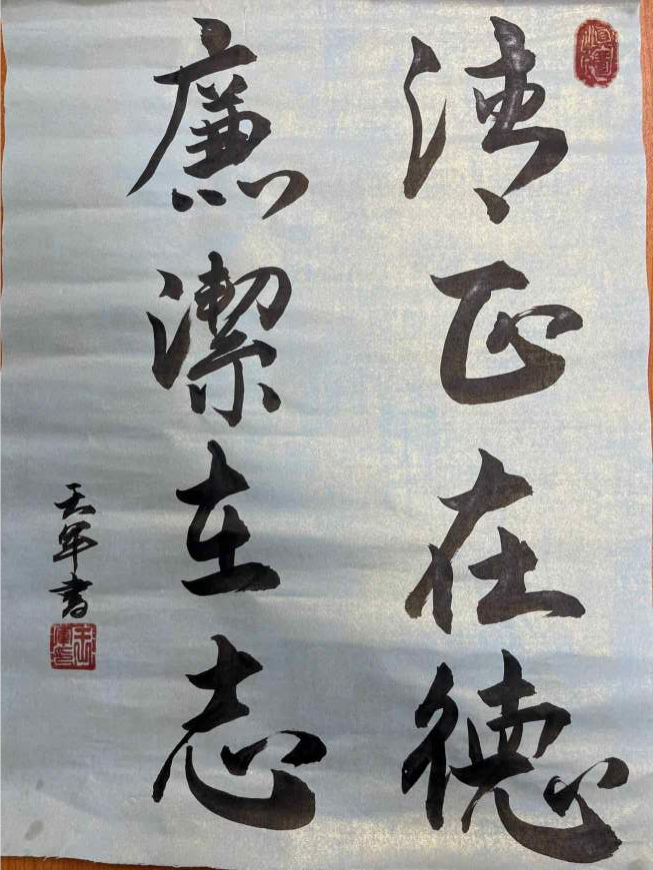 清正在德
廉潔在志
天年書